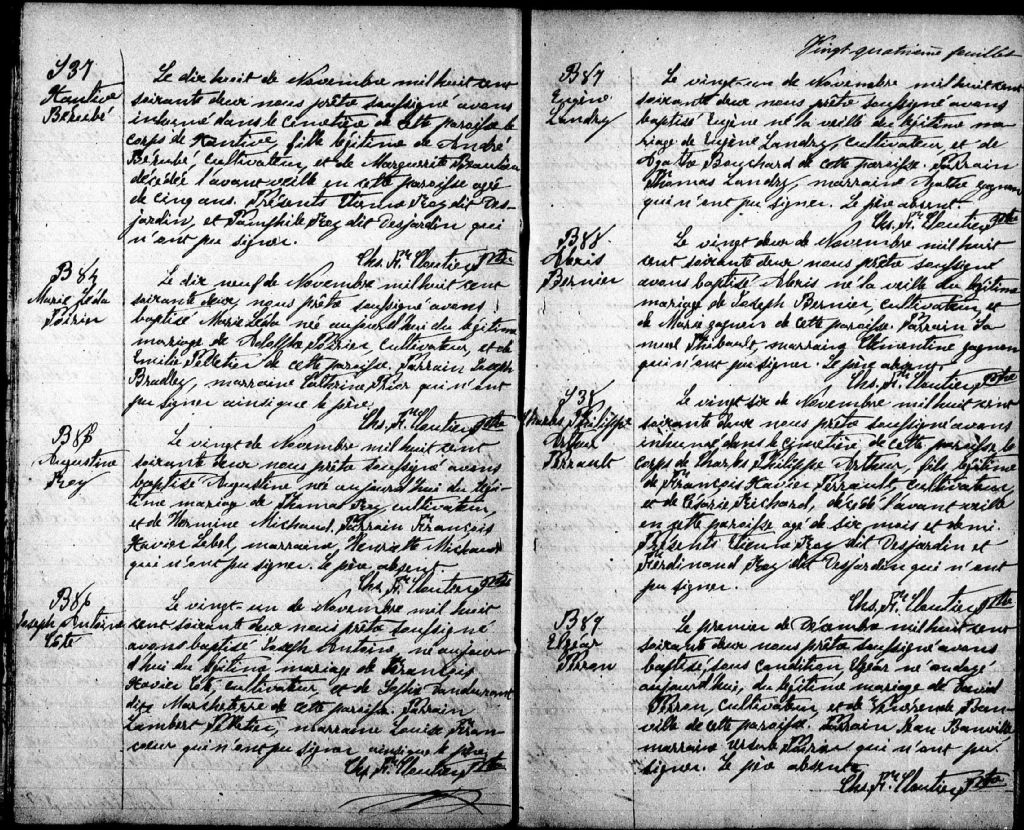 S 37
Xantive
Bérubé
Le dix huit de Novembre mil huit cent
soixante deux nous prêtre soussigné avons
inhumé dans le cimetière de cette paroisse le
corps de Xantive, fille légitime de André
Bérubé, cultivateur, et de Marguerite Beaulieu
décédée l'avant veille en cette paroisse agée
de cinq ans. Présents Etienne Roy dit Des-
jardin, et Pamphile Roy dit Desjardin qui
n'ont pu signer.
Chs. Fr. Cloutier Ptre
B 84
Marie Léda
Poirier
Le dix neuf de Novembre mil huit cent
soixante deux nous prêtre soussigné avons
baptisé Marie Léda née aujourd'hui du légitime
mariage de Adolphe Poirier cultivateur, et de
Emilie Pelletier de cette paroisse. Parrain Joseph
Bradley, marraine Catherine Prior qui n'ont
pu signer ainsi que le père.
Chs. Fr. Cloutier Ptre
B 85
Augustine
Roy
Le vingt de Novembre mil huit cent
soixante deux nous prêtre soussigné avons
baptisé Augustine née aujourd'hui du légi-
time mariage de Thomas Roy cultivateur,
et de Hermine Michaud. Parrain François
Xavier Lebel, marraine, Henriette Michaud
qui n'ont pu signer. Le père absent
Chs. Fr. Cloutier Ptre
B 86
Joseph Antoine
Coté
Le vingt-un de Novembre mil huit
cent soixante deux nous prêtre soussigné
avons baptisé Joseph Antoine, né aujour-
d'hui du légitime mariage de François
Xavier Coté, cultivateur, et de Sophie Vandurand
dite Marcheterre de cette paroisse. Parrain
Lambert Pelletier, marraine Louise Fran-
coeur qui n'ont pu signer ainsi que le père.
Chs. Fr. Cloutier Ptre
Vingt-quatrième feuillet
B 87
Eugène
Landry
Le vingt-un de Novembre mil huit cent
soixante deux nous prêtre soussigné avons
baptisé Eugène né la veille du légitime ma-
riage de Eugène Landry, cultivateur, et de
Agathe Bouchard de cette paroisse. Parrain
Thomas Landry, marraine Agathe Gagnon
qui n'ont pu signer. Le père absent.
Chs. Fr. Cloutier Ptre
B 88
Alexis
Bernier
Le vingt deux de Novembre mil huit
cent soixante deux nous prêtre soussigné
avons baptisé Alexis né la veille du légitime
mariage de Joseph Bernier, cultivateur, et
de Marie Gagnon de cette paroisse. Parrain Sa
muel Thibault, marraine Clémentine Gagnon
qui n'ont pu signer. Le père absent.
Chs. Fr. Cloutier Ptre
S 38
Charles Philippe
Arthur
Perrault
Le vingt six de Novembre mil huit cent
soixante deux nous prêtre soussigné avons
inhumé dans le cimetière de cette paroisse le
corps de Charles Philippe Arthur, fils légitime
de François Xavier Perrault, cultivateur
et de Césarie Richard, décédé l'avant veille
en cette paroisse agé de six mois et demi.
Présents Etienne Roy dit Desjardin et
Ferdinand Roy dit Desjardin qui n'ont
pu signer.
Chs. Fr. Cloutier Ptre
B 89
Elzéar
Perron
Le premier de Décembre mil huit cent
soixante deux nous prêtre soussigné avons
baptisé, sous condition Elzéar né
aujourd'hui, du légitime mariage de David
Perron cultivateur, et de Banville
de cette paroisse. Parrain Jean Banville
marraine Ursule qui n'ont pu
signer. Le père absent
Chs. Fr. Cloutier Ptre